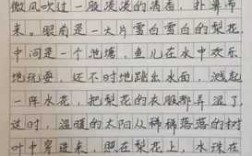 微风吹过一股淡淡的清香,扑鼻
来。眼前是一大片雪白雪白的梨花
中间是一个池塘,鱼儿在水中欢乐
地玩耍,还不时地跳出水面,溅起
一阵水花,把梨花的衣服都弄湿了
这时,温暖的太阳从稀稀落落的树
叶中穿进来,照在梨花上,水珠在